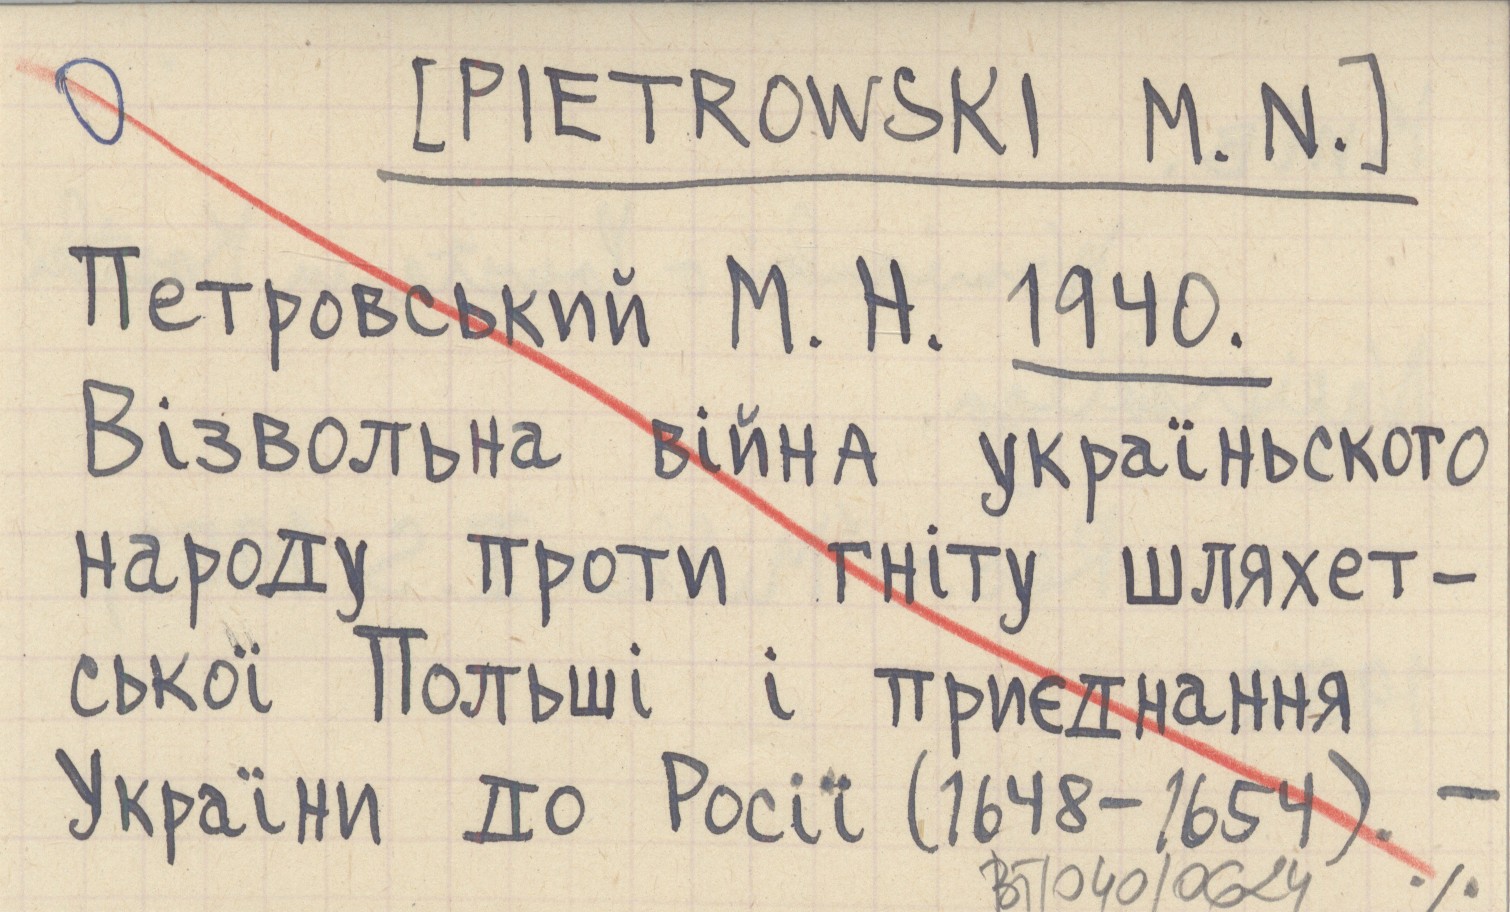 [PIETROWSKI M. N.]
Петровський М. Н. 1940.
Візвольна війна україньского
народу проти гніту шляхет-
ської Польші і приєднання
України до Росії (1648-1654). -
BT/040/0624 ./.